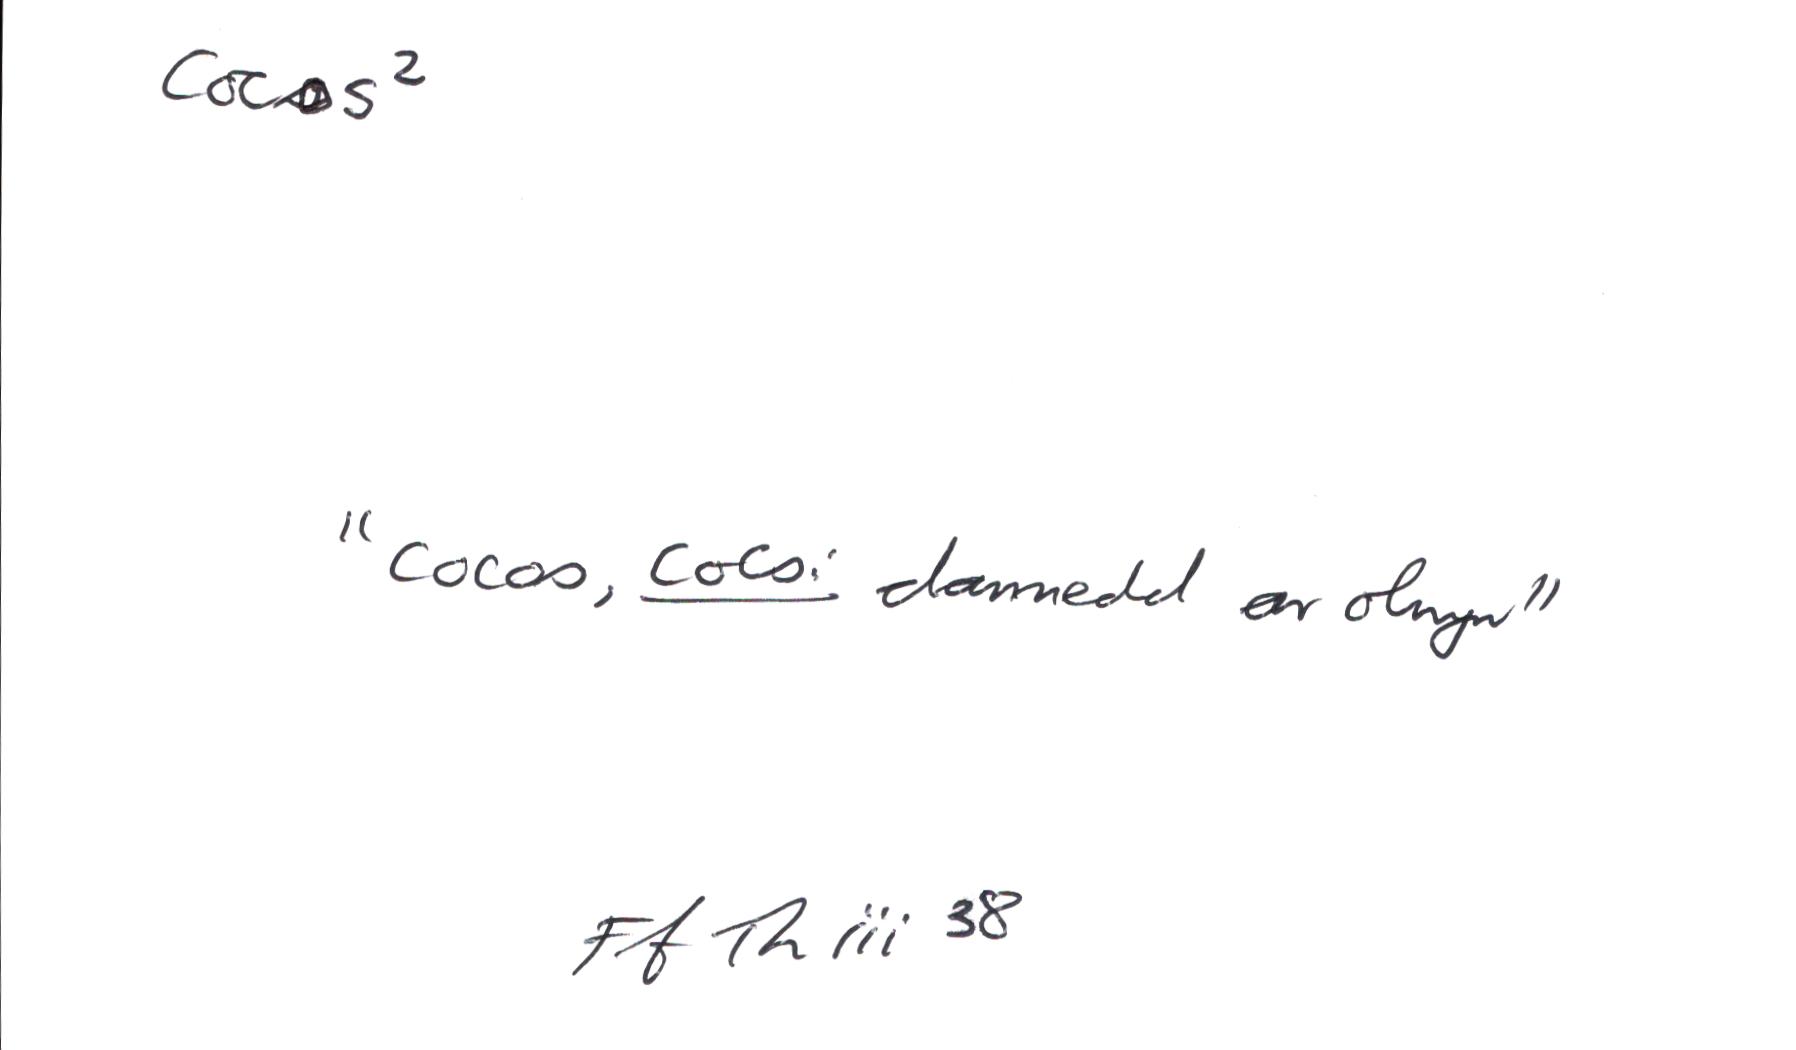 Cocos²
"Cocos, Cocsi dannedd ar olwyn"
Ff Th iii 38